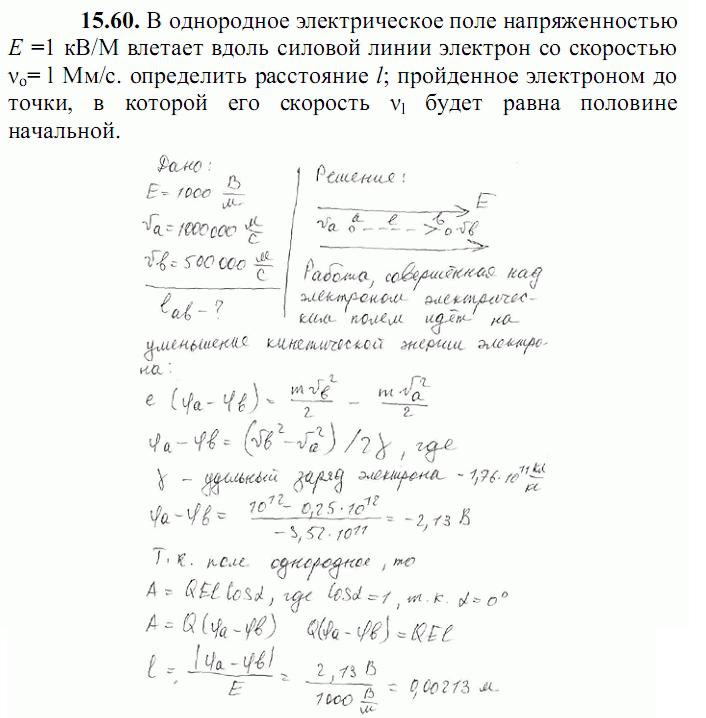 15.60. В однородное электрическое поле напряженностью
E =1 кВ/М влетает вдоль силовой линии электрон со скоростью
νₒ= l Мм/с. определить расстояние l; пройденное электроном до
точки, в которой его скорость νl будет равна половине
начальной.
Дано:
E = 1000 В/м
va = 1000000 м/с
vв = 500 000 м/с
lав - ?
Решение:
E
va a l в vв
Работа, совершённая над
электроном электричес-
ким полем идёт на
уменьшение кинетической энергии электро-
на:
e (φa - φв) = mvв²/2 - mva²/2
φa - φв = (vв² - va²) / 2γ, где
γ - удельный заряд электрона - 1,76·10¹¹ кл/кг
φa - φв = (10¹² - 0,25·10¹²)/(-3,52·10¹¹) = -2,13 В
Т.к. поле однородное, то
A = QEl cosα, где cosα = 1, т.к. α = 0°
A = Q(φa - φв) Q(φa - φв) = QEl
l = |φa - φв|/E = 2,13 В/1000 В/м = 0,00213 м.